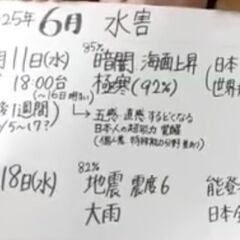 25年6月 水害
月11日(水) 85% 暗闇 海面上昇 (日本
18:00台 極寒(92%) 世界
(〜16日明け)
1週間) → 五感・直感 するどくなる
/5〜17? 日本人の超能力 覚醒
(個人差、特殊能力分野 差あり)
18日(水) 82% 地震 震度6 能登
大雨 日本全